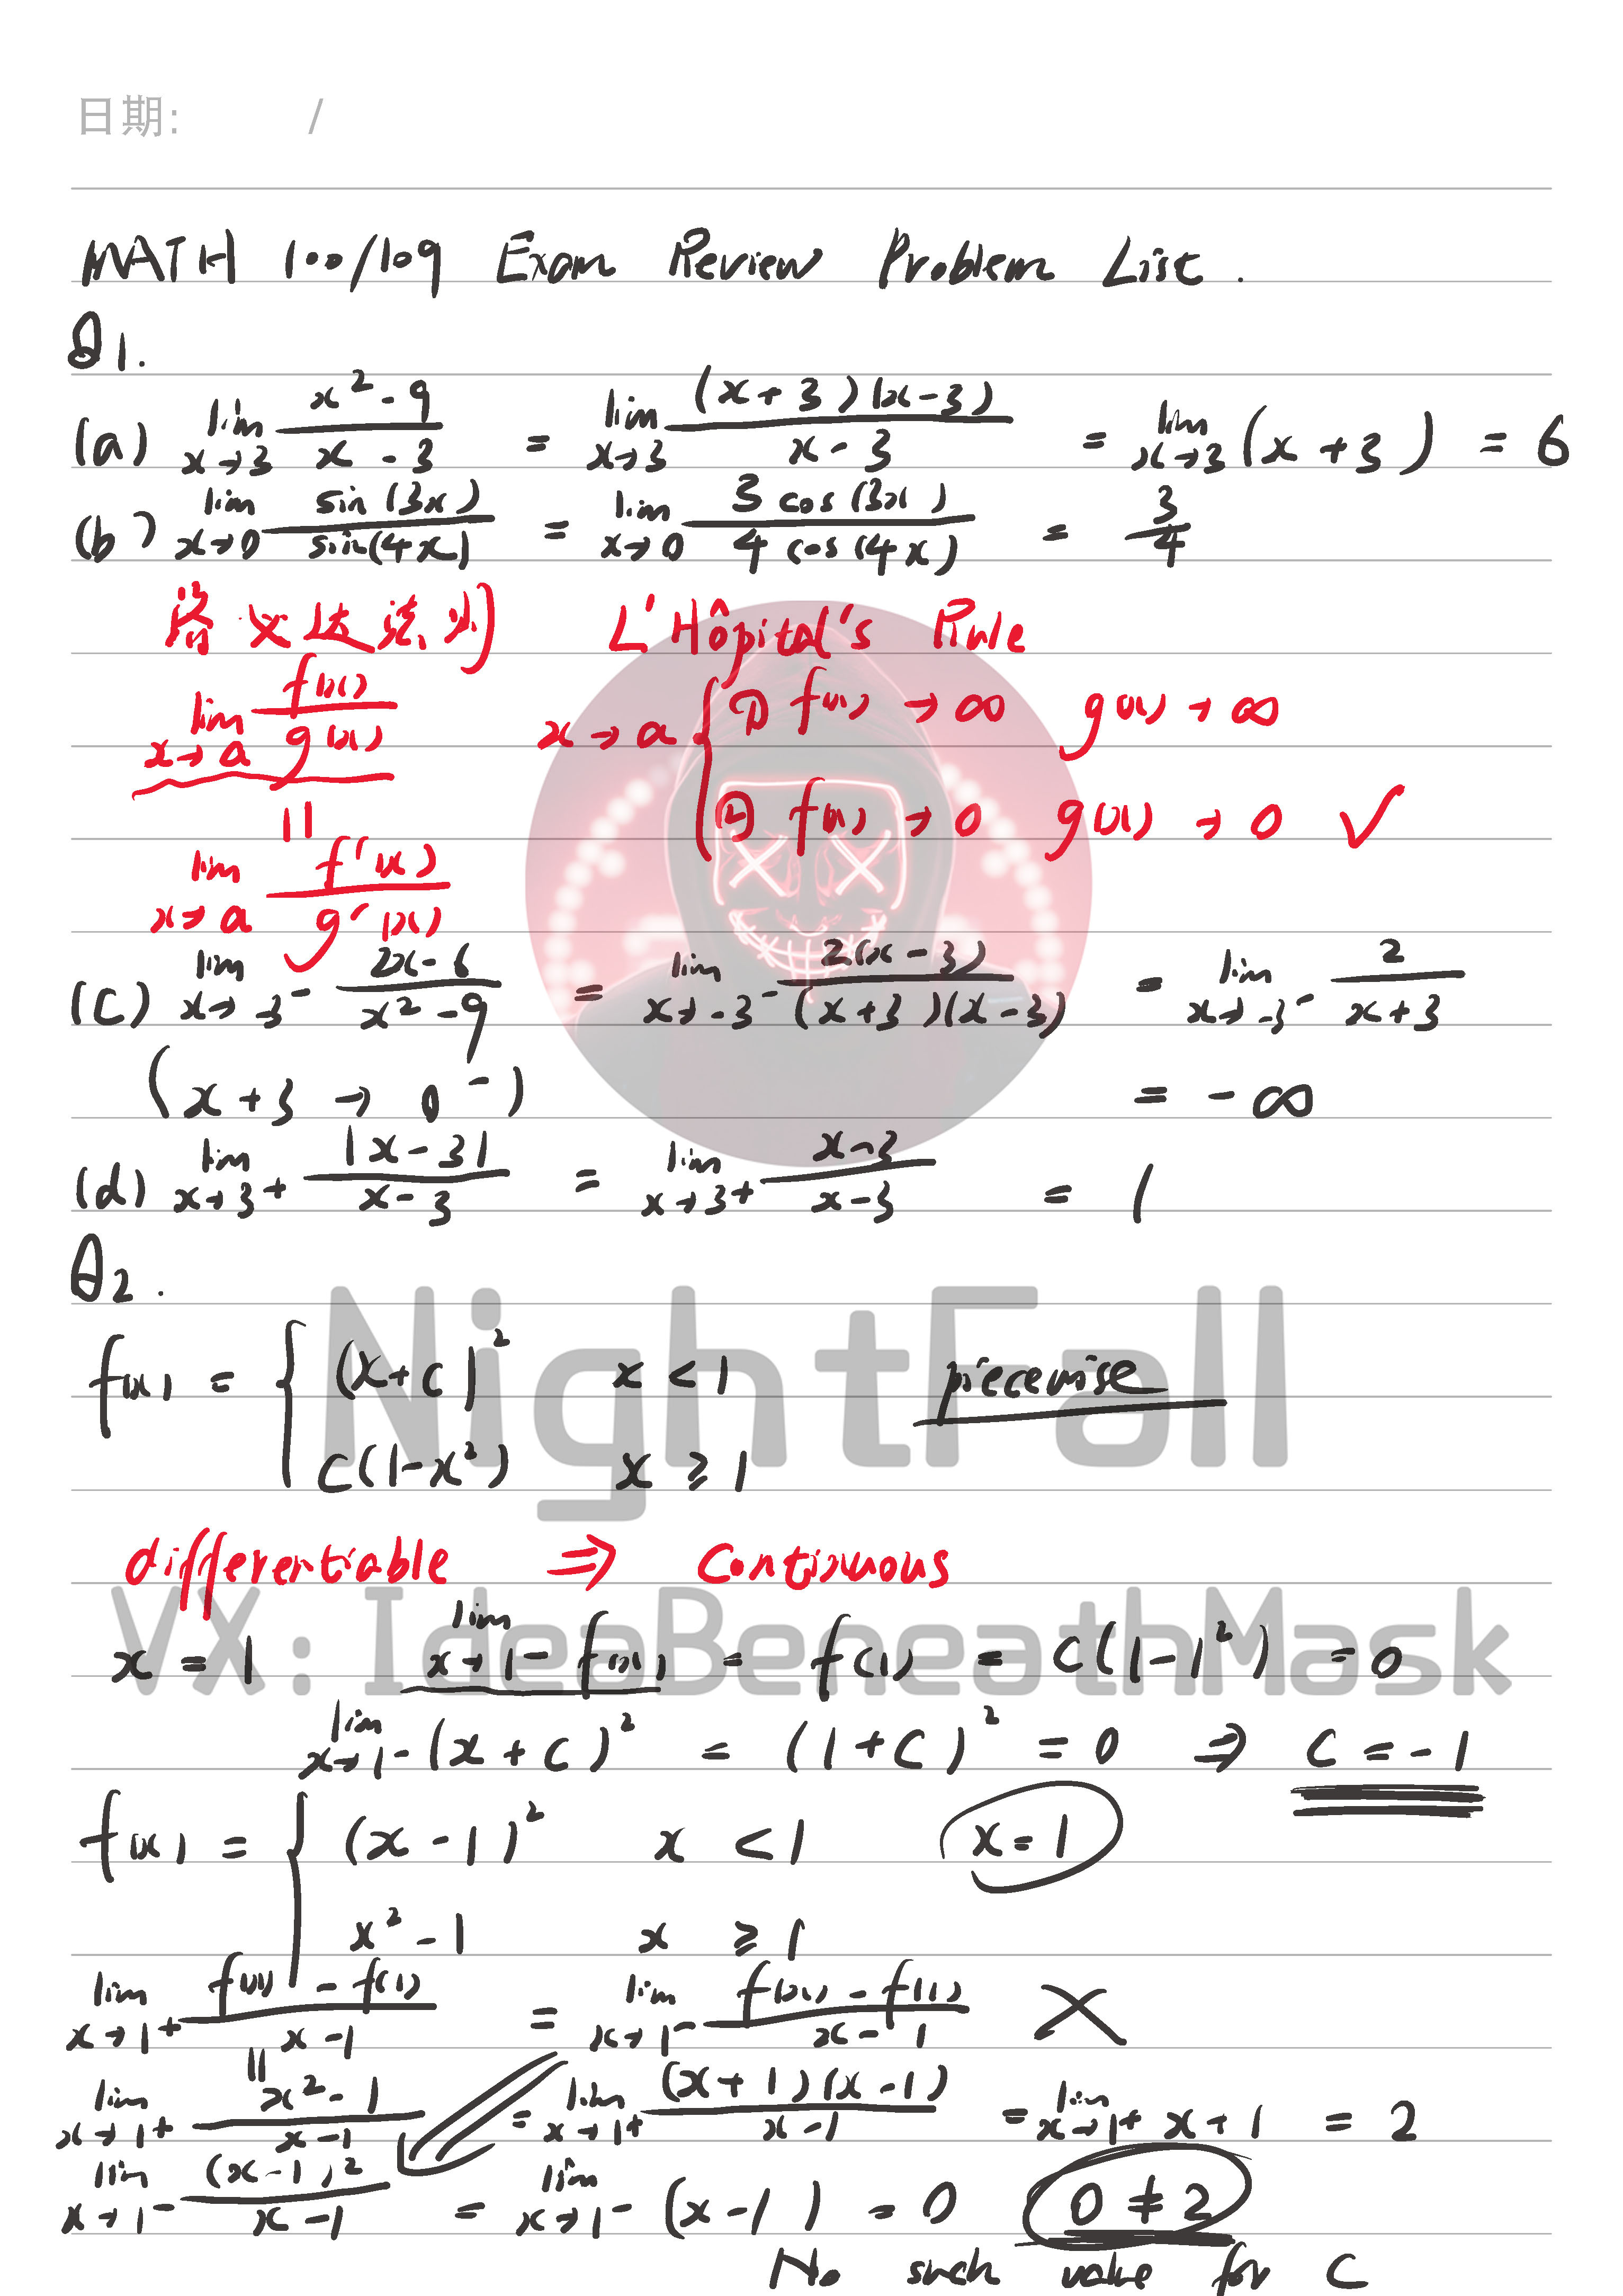 日期: /
MATH 100/109 Exam Review Problem List.
Q1.
(a) lim x→3 (x²-9)/(x-3) = lim x→3 (x+3)(x-3)/(x-3) = lim x→3 (x+3) = 6
(b) lim x→0 sin(3x)/sin(4x) = lim x→0 3cos(3x)/4cos(4x) = 3/4
洛必达法则 L'Hôpital's Rule
lim x→a f(x)/g(x) x→a { ① f(x)→∞ g(x)→∞
② f(x)→0 g(x)→0 ✓
||
lim x→a f'(x)/g'(x)
(c) lim x→-3⁻ (2x-6)/(x²-9) = lim x→-3⁻ 2(x-3)/(x+3)(x-3) = lim x→-3⁻ 2/(x+3)
(x+3→0⁻) = -∞
(d) lim x→3+ |x-3|/(x-3) = lim x→3+ (x-3)/(x-3) = 1
Q2.
NightFall
f(x) = { (x+c)² x<1 piecewise
c(1-x²) x≥1
differentiable ⇒ continuous
VX: IdeaBeneathMask
x=1 lim x→1- f(x) = f(1) = c(1-1²) = 0
lim x→1- (x+c)² = (1+c)² = 0 ⇒ c=-1
f(x) = { (x-1)² x<1 x=1
x²-1 x≥1
lim x→1+ (f(x)-f(1))/(x-1) = lim x→1- (f(x)-f(1))/(x-1) ×
||
lim x→1+ (x²-1)/(x-1) = lim x→1+ (x+1)(x-1)/(x-1) = lim x→1+ x+1 = 2
lim x→1- (x-1)²/(x-1) = lim x→1- (x-1) = 0 0≠2
No such value for c